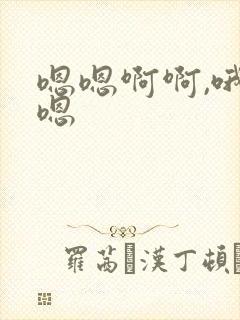 嗯嗯啊啊,哦
嗯
羅茜 漢丁頓